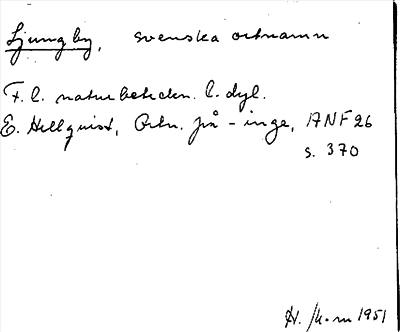 Ljungby, svenska ortnamn
F. l. naturbeteckn. l. dyl.
E. Hellquist, Ortn. på -inge, ANF 26
s. 370
1951